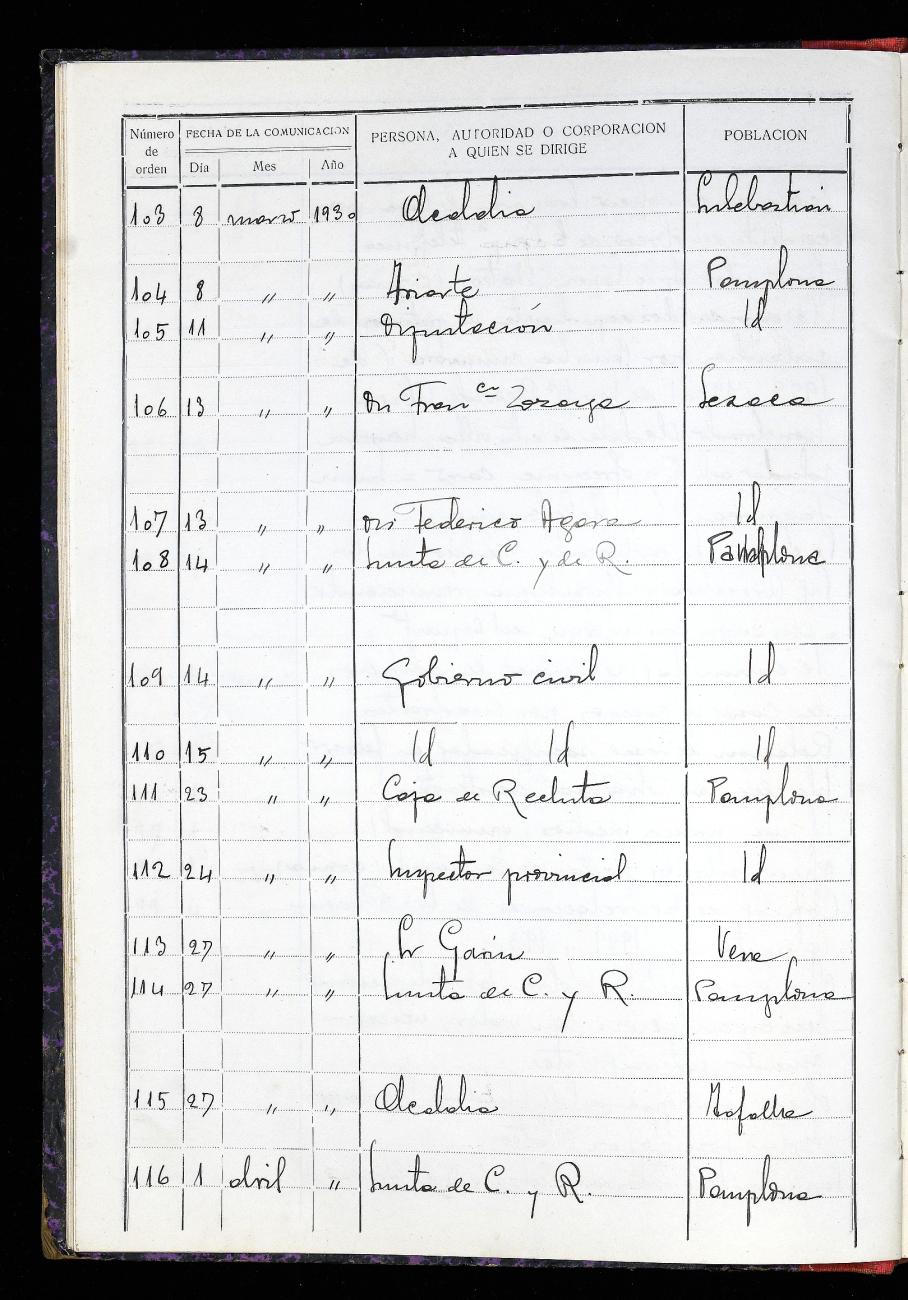 Número de orden FECHA DE LA COMUNICACION PERSONA, AUTORIDAD O CORPORACION A QUIEN SE DIRIGE POBLACION
Día Mes Año
103 8 marzo 1930 Alcaldia Sn Sebastián
104 8 " " Ariarte Pamplona
105 11 " " Diputación Id
106 13 " " Dn Franco Zozaya Lesaca
107 13 " " Dn Federico Agara Id
108 14 " " Junta de C. y de R. Pamplona
109 14 " " Gobierno civil Id
110 15 " " Id Id Id
111 23 " " Caja de Recluta Pamplona
112 24 " " Inspector provincial Id
113 27 " " Sr Garin Vera
114 27 " " Junta de C. y R. Pamplona
115 27 " " Alcaldia Tafalla
116 1 abril " Junta de C. y R. Pamplona